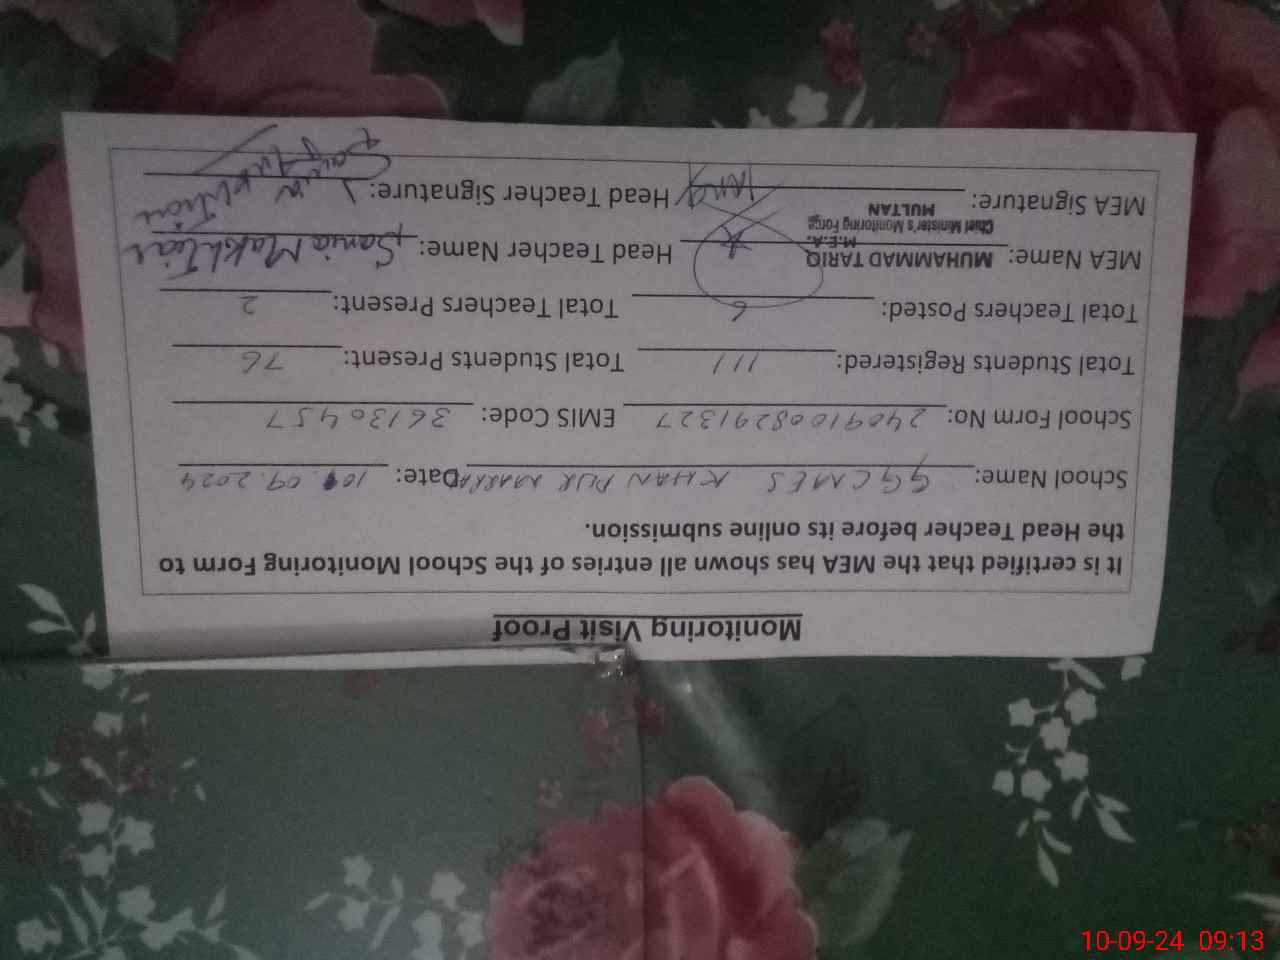 Monitoring Visit Proof
It is certified that the MEA has shown all entries of the School Monitoring Form to
the Head Teacher before its online submission.
School Name: GGCMES KHAN PUR MARRAL Date: 10.09.2024
School Form No: 24091008291327 EMIS Code: 36130457
Total Students Registered: 111 Total Students Present: 76
Total Teachers Posted: 6 Total Teachers Present: 2
MEA Name: MUHAMMAD TARIQ Head Teacher Name: Sania Makhtiar
M.E.A.
Chief Minister's Monitoring Force
MULTAN
MEA Signature: Head Teacher Signature:
10-09-24 09:13